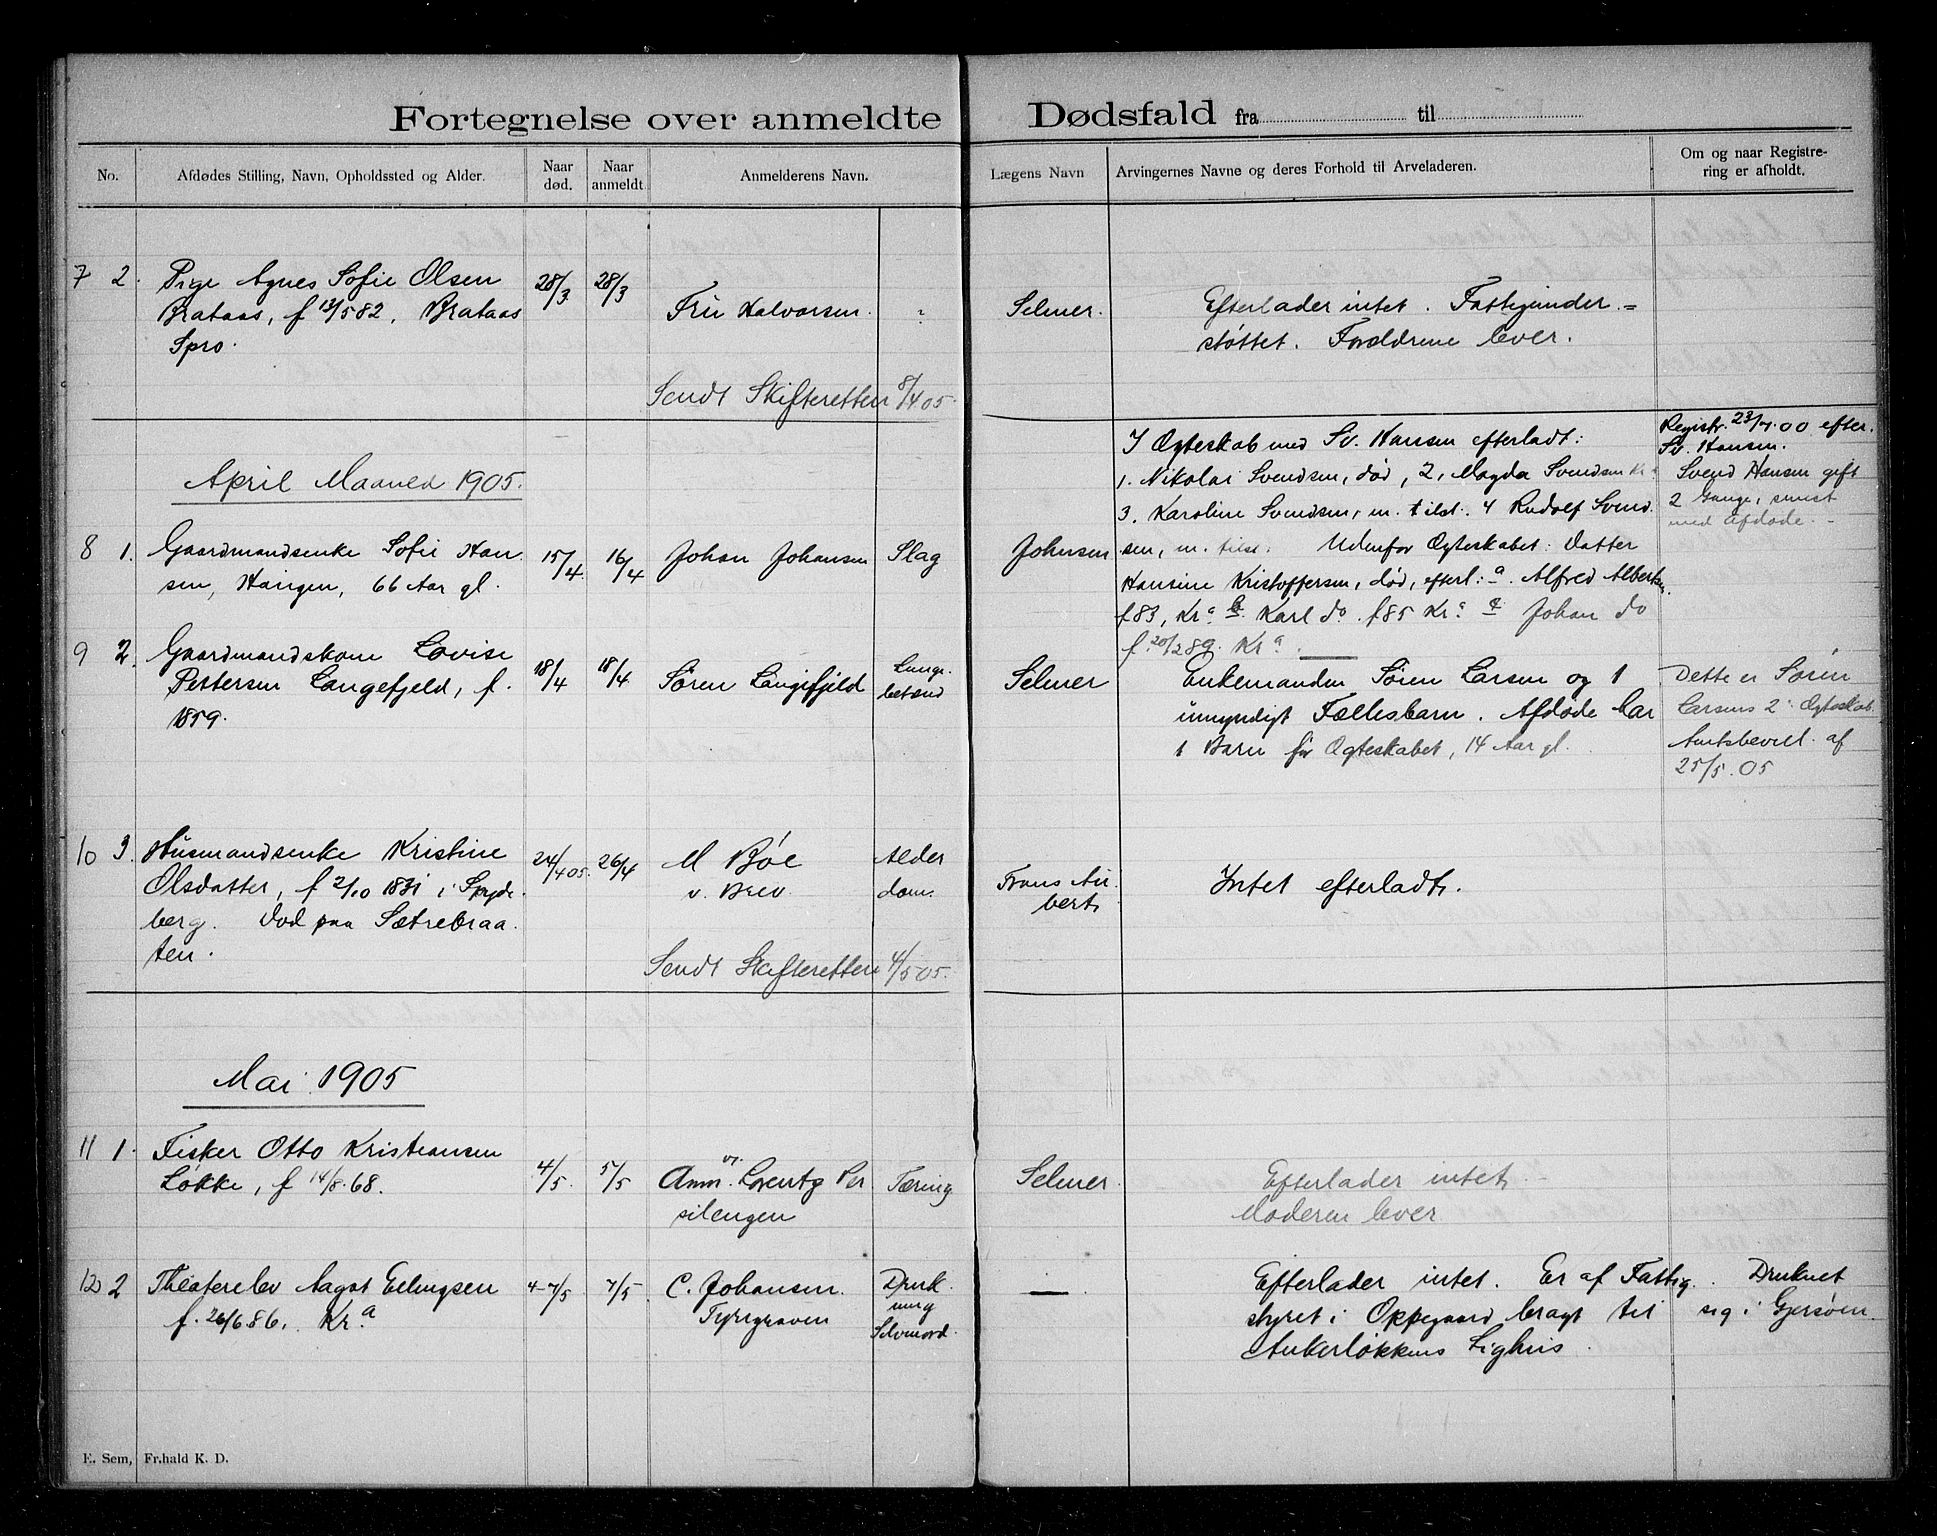 Fortegnelse over anmeldte Dødsfald fra til
No.
Afdødes Stilling, Navn, Opholdssted og Alder.
Naar
død.
Naar
anmeldt
Anmelderens Navn.
Lægens Navn
Arvingernes Navne og deres Forhold til Arveladeren.
Om og naar Registre-
ring er afholdt.
7 2. Pige Agnes Sofie Olsen
Brataas, f 13/5 82, Brataas
Spro.
28/3 28/3
Fru Halvorsen.
Selmer.
Efterlader intet. Fattigunder=
støttet. Forældrene lever.
Sendt Skifteretten 8/4 05.
April Maaned 1905.
8 1. Gaardmandsenke Sofie Han
sen, Haugen, 66 Aar gl.
15/4 16/4
Johan Johansen
Slag
Johnsen
I Ægteskab med Sv. Hansen efterladt:
1. Nikolai Svendsen, død, 2, Magda Svendsen Kr a
3. Karoline Svendsen, m. tilst. 4 Rudolf Svend
sen, m. tilst. Udenfor Ægteskabet: Datter
Hansine Kristoffersen, død, efterl: a. Alfred Albertsen
f 83, Kr a b. Karl do. f 85 Kr a c Johan do
f. 20/2 89. Kr a.
Registr. 23/7.00 efter
Sv. Hansen.
Svend Hansen gift
2 Gange, sidst
med Afdøde.
9 2. Gaardmandskone Lovise
Pettersen Langefjeld, f.
1859.
18/4 18/4
Søren Langefjeld
Lunge-
betænd
Selmer
Enkemanden Søren Larsen og 1
umyndigt Fællesbarn. Afdøde har
1 Barn før Ægteskabet, 14 Aar gl.
Dette er Søren
Larsens 2 Ægteskab.
Amtsbevill. af
25/5.05
10 3. Husmandsenke Kristine
Olsdatter, f 2/10 1831 i Spyde
berg. Død paa Sætrebraa
ten.
24/4 05. 26/4
M Bøe
v. Brev.
Alder
dom.
Frans Au
bert,
Intet efterladt.
Sendt Skifteretten 4/5 05.
Mai 1905
11 1. Fisker Otto Kristiansen
Løkke, f 14/8.68.
4/5. 5/5
Anm. v. Lorentz Per
silengen
Tæring
Selmer
Efterlader intet,
Moderen lever
12 2 Theaterelev Aagot Ellingsen
f. 26/6 86, Kr.a
4-7/5 7/5
C. Johansen.
Tyrigraven
Druk
ning
Selvmord.
—
Efterlader intet. Er af Fattig.
styret i Oppegaard bragt til
Ankerløkkens Lighus.
Druknet
sig i Gjersøen
E. Sem, Fr.hald K. D.